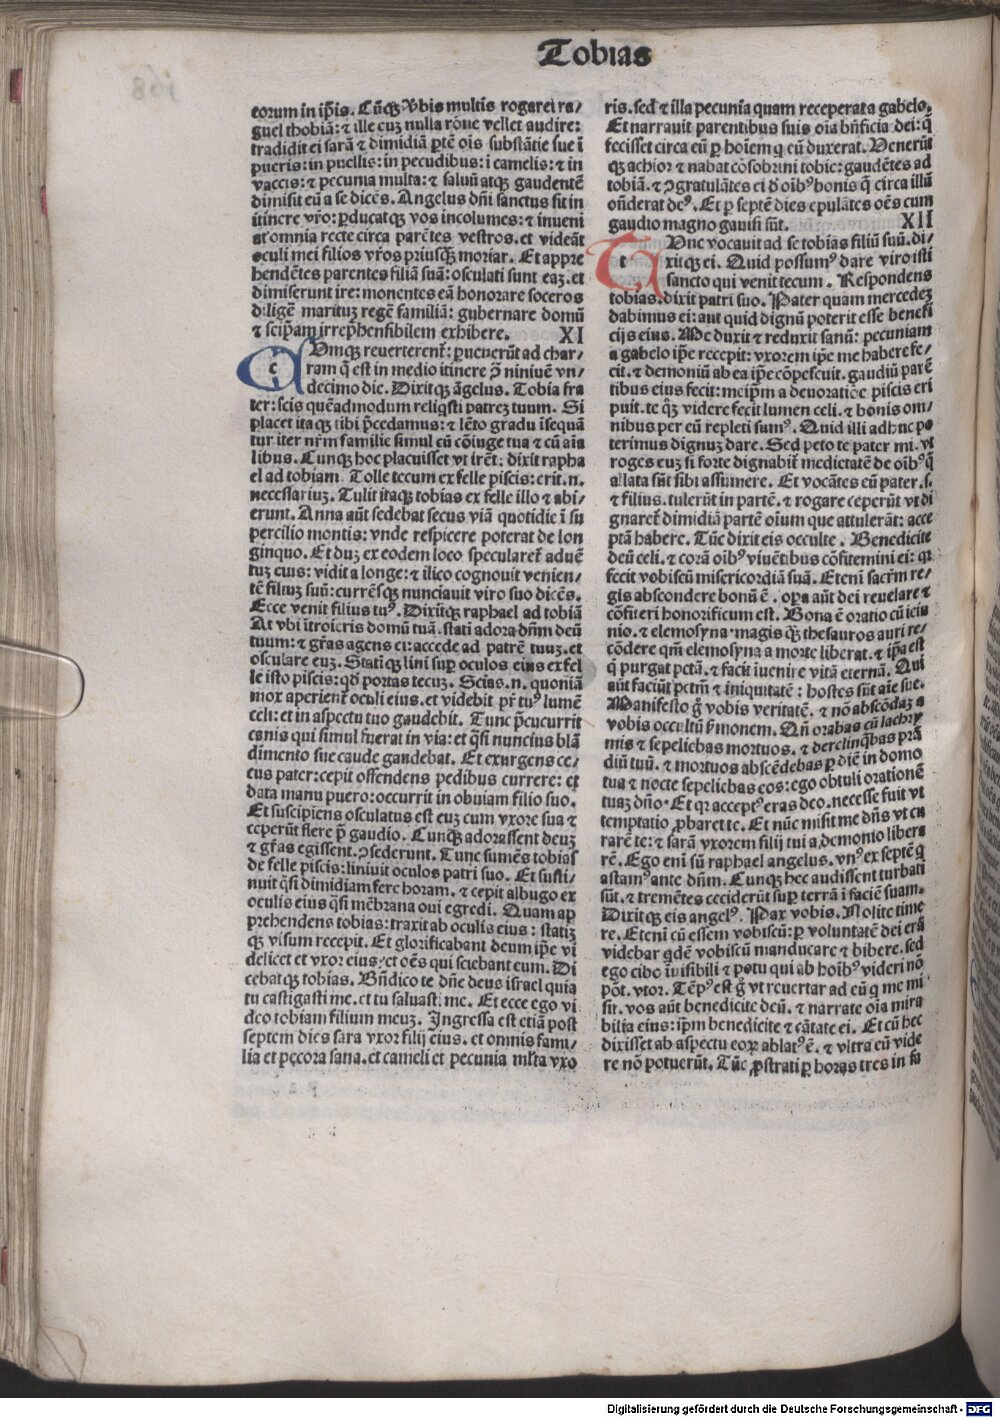 Tobias
eorum in ip̄is. Cūq; v̄bis multis rogaret ra/
guel thobiā: ⁊ ille cuȝ nulla rōne vellet audire:
tradidit ei sarā ⁊ dimidiā ꝑtē ois substātie sue i
pueris: in puellis: in pecudibus: i camelis: ⁊ in
vaccis: ⁊ pecunia multa: ⁊ saluū atq; gaudentē
dimisit eū a se dicēs. Angelus dn̄i sanctus sit in
itinere vr̄o: ꝑducatq; vos incolumes: ⁊ inueni
atis omnia recte circa parētes vestros. et videāt
oculi mei filios vr̄os priusq̄ȝ moriar. Et appre
hendētes parentes filiā suā: osculati sunt eaȝ. et
dimiserunt ire: monentes eā honorare soceros
diligē marituȝ regē familiā: gubernare domū
⁊ seip̄am irrep̄hensibilem exhibere. XI
c Vmq; reuerterent̄: ꝑuenerūt ad char/
ram q̄ est in medio itinere ꝓ niniuē vn/
decimo die. Dixitq; āgelus. Tobia fra
ter: scis quēadmodum reliq̄sti patreȝ tuum. Si
placet itaq; tibi p̄cedamus: ⁊ lēto gradu īsequā
tur iter nr̄m familie simul cū cōiuge tua ⁊ cū aīa
libus. Cunq; hoc placuisset vt irēt: dixit rapha
el ad tobiam. Tolle tecum ex felle piscis: erit .n.
necessariuȝ. Tulit itaq; tobias ex felle illo ⁊ abi/
erunt. Anna aūt sedebat secus viā quotidie ī su
percilio montis: vnde respicere poterat de lon
ginquo. Et duȝ ex eodem loco specularet̄ aduē
tuȝ eius: vidit a longe: ⁊ ilico cognouit venien/
tē filiuȝ suū: currēsq; nunciauit viro suo dicēs.
Ecce venit filius tu⁹. Dixitq; raphael ad tobiā
At vbi ītroieris domū tuā. stati adora dn̄m deū
tuum: ⁊ gr̄as agens ei: accede ad patrē tuuȝ. et
osculare euȝ. Statiq; lini suꝑ oculos eius ex fel
le isto piscis: qd̄ portas tecuȝ. Scias .n. quoniā
mox aperient̄ oculi eius. et videbit pr̄ tu⁹ lumē
celi: et in aspectu tuo gaudebit. Tunc p̄cucurrit
canis qui simul fuerat in via: et q̄si nuncius blā
dimento sue caude gaudebat. Et exurgens ce/
cus pater: cepit offendens pedibus currere: et
data manu puero: occurrit in obuiam filio suo.
Et suscipiens osculatus est euȝ cum vxore sua ⁊
ceperūt flere p̄ gaudio. Cunq; adorassent deuȝ
⁊ gr̄as egissent. ꝯsederunt. Tunc sumēs tobias
de felle piscis: liniuit oculos patri suo. Et susti/
nuit q̄si dimidiam fere horam. ⁊ cepit albugo ex
oculis eius q̄si mēbrana oui egredi. Quam ap
prehendens tobias: traxit ab oculis eius: statiȝ
q; visum recepit. Et glorificabant deum ip̄e vi
delicet et vxor eius: et oēs qui sciebant eum. Di
cebatq; tobias. Bn̄dico te dn̄e deus israel quia
tu castigasti me. et tu saluasti me. Et ecce ego vi
deo tobiam filium meuȝ. Ingressa est etiā post
septem dies sara vxor filij eius. et omnis fami/
lia et pecora sana. et cameli et pecunia ml̄ta vxo
ris. sed ⁊ illa pecunia quam receperat a gabelo.
Et narrauit parentibus suis oīa bn̄ficia dei: q̄
fecisset circa eū ꝑ hoīem q eū duxerat. Venerūt
q; achior ⁊ nabat cōsobrini tobie: gaudētes ad
tobiā. ⁊ ꝯgratulātes ei d̄ oīb⁹ bonis q̄ circa illū
on̄derat de⁹. Et ꝑ septē dies epulātes oēs cum
gaudio magno gauisi sūt. XII
t Vnc vocauit ad se tobias filiū suū. di/
xitq; ei. Quid possum⁹ dare viro isti
sancto qui venit tecum. Respondens
tobias. dixit patri suo. Pater quam mercedeȝ
dabimus ei: aut quid dignū poterit esse benefi
cijs eius. Me duxit ⁊ reduxit sanū: pecuniam
a gabelo ip̄e recepit: vxorem ip̄e me habere fe/
cit. ⁊ demoniū ab ea ip̄e cōpescuit. gaudiū parē
tibus eius fecit: meip̄m a deuoratiōe piscis eri
puit. te q̄ȝ videre fecit lumen celi. ⁊ bonis om/
nibus per eū repleti sum⁹. Quid illi ad hnc po
terimus dignuȝ dare. Sed peto te pater mi. vt
roges euȝ si forte dignabit̄ medietatē de oīb⁹ q̄
allata sūt sibi assumere. Et vocātes eū pater .s.
⁊ filius. tulerūt in partē. ⁊ rogare ceperūt vt di
gnaret̄ dimidiā partē oīum que attulerāt: acce
ptā habere. Tūc dixit eis occulte. Benedicite
deū celi. ⁊ corā oīb⁹ viuētibus cōfitemini ei: qr
fecit vobiscū misericordiā suā. Eteni sacrm̄ re/
gis abscondere bonū ē. oꝑa aūt dei reuelare ⁊
cōfiteri honorificum est. Bona ē oratio cū ieiu
nio. ⁊ elemosyna magis q̄ȝ thesauros auri re/
cōdere qm̄ elemosyna a morte liberat. ⁊ ip̄a est
q̄ purgat pctā. ⁊ facit inuenire vitā eternā. Qui
aūt faciūt pctm̄ ⁊ iniquitatē: hostes sūt aīe sue.
Manifesto ḡ vobis veritatē. ⁊ nō abscōdaȝ a
vobis occultū ẜmonem. Qn̄ orabas cū lachry
mis ⁊ sepeliebas mortuos. ⁊ derelinq̄bas prā
diū tuū. ⁊ mortuos abscēdebas ꝑ diē in domo
tua ⁊ nocte sepeliebas eos: ego obtuli orationē
tuaȝ dn̄o. Et qr accept⁹ eras deo. necesse fuit vt
temptatio ꝓbaret te. Et nūc misit me dn̄s vt cu
rarē te: ⁊ sarā vxorem filij tui a demonio libera
rē. Ego eni sū raphael angelus. vn⁹ ex septē q
astam⁹ ante dn̄m. Cunq; hec audissent turbati
sūt. ⁊ tremētes ceciderūt suꝑ terrā ī faciē suam.
Dixitq; eis angel⁹. Pax vobis. Nolite time
re. Eteni cū essem vobiscū: ꝑ voluntatē dei erā
videbar qdē vobiscū manducare ⁊ bibere. sed
ego cibo īuisibili ⁊ potu qui ab hoīb⁹ videri nō
pōt. vtor. Tēp⁹ est ḡ vt reuertar ad eū q me mi
sit. vos aūt benedicite deū. ⁊ narrate oīa mira
bilia eius: ip̄m benedicite ⁊ cātate ei. Et cū hec
dixisset ab aspectu eoꝝ ablat⁹ ē. ⁊ vltra eū vide
re nō potuerūt. Tūc ꝓstrati ꝑ horas tres in fa
Digitalisierung gefördert durch die Deutsche Forschungsgemeinschaft - DFG